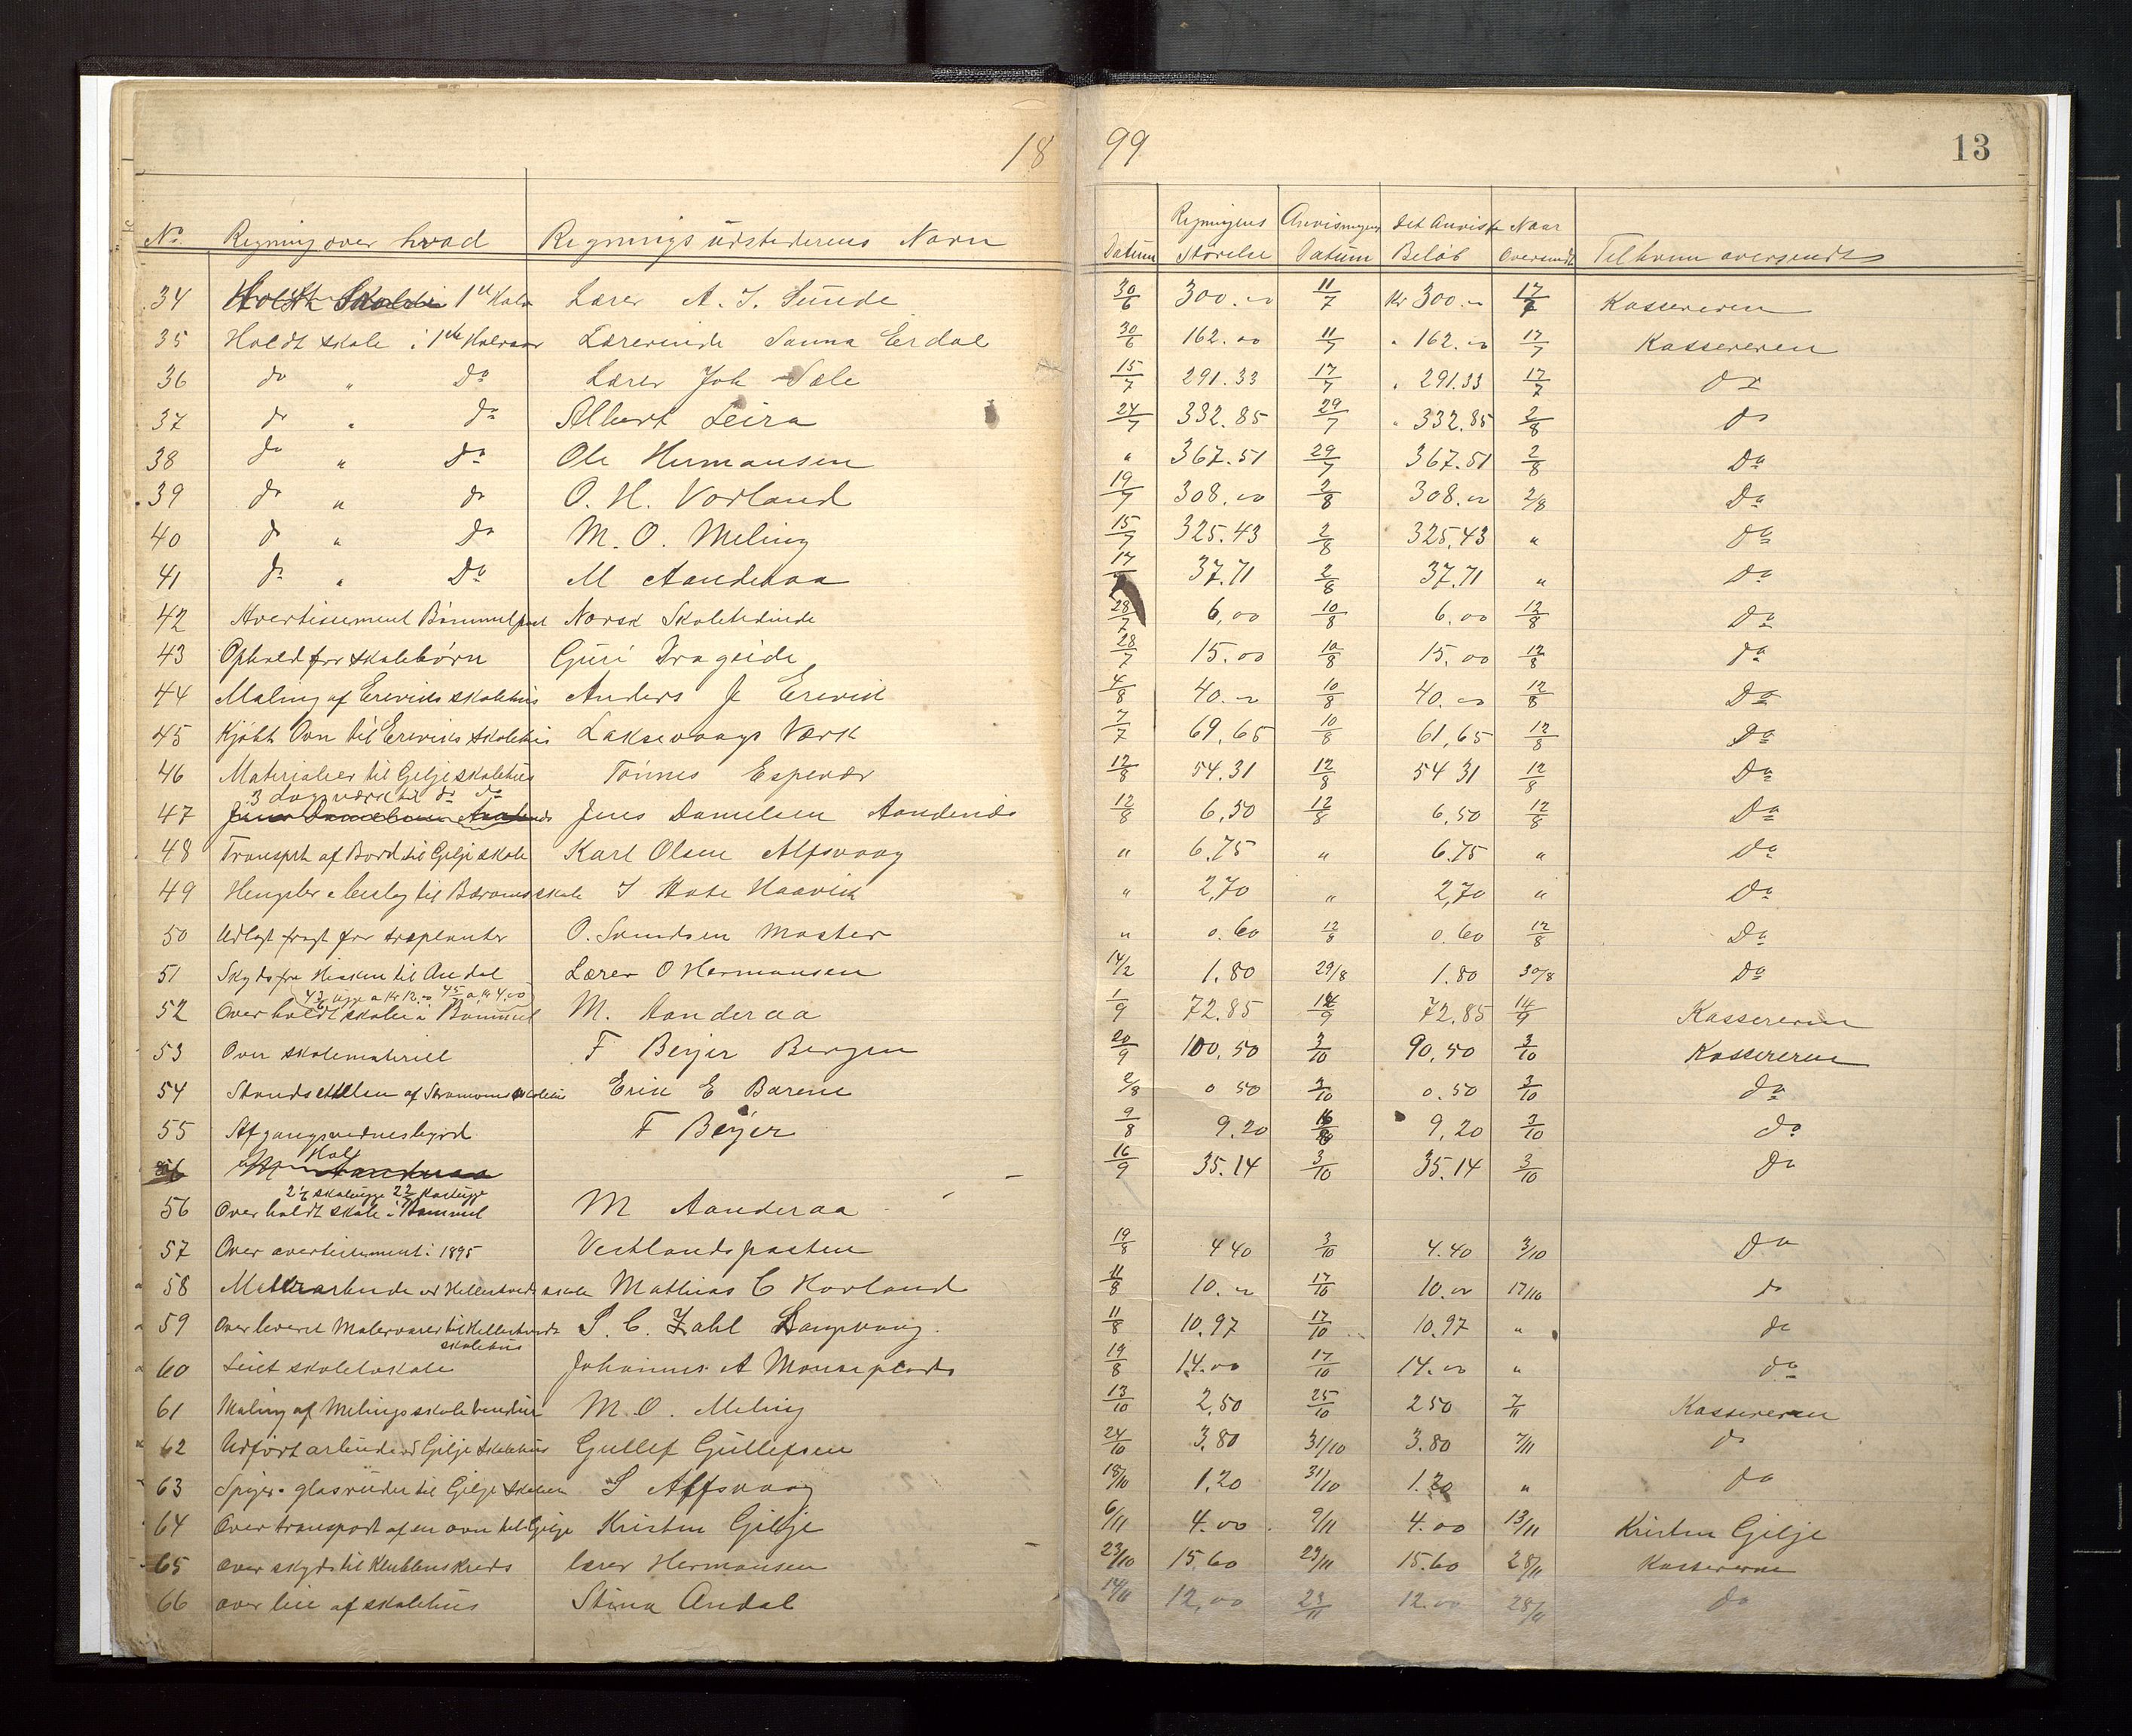 1899
13
No. Regning over hvad Regningsudstederens Navn Datum Regningens Störelse Anvisningens Datum Det Anviste Beløb Naar Oversendt Til hvem oversendt
34 Holdt Skole i 1ste Halv Lærer A. J. Sunde 30/6 300.00 11/7 Kr 300.00 17/7 Kassereren
35 Holdt skole i 1ste Halvaar Lærerinde Sanna Erdal 30/6 162.00 11/7 " 162.00 17/7 Kassereren
36 do " Do Lærer Joh Sæle 15/7 291.33 17/7 " 291.33 17/7 do
37 do " do Albert Leira 24/7 332.85 29/7 " 332.85 2/8 do
38 do " Do Ole Hermansen " 367.51 29/7 367.51 2/8 Do
39 do " do O. H. Vorland 19/7 308.00 2/8 308.00 2/8 Do
40 do " Do M. O. Meling 15/7 325.43 2/8 325.43 " do
41 do " Do M Aanderaa 17/7 37.71 2/8 37.71 " do
42 Avertisement Bömmelpost Norsk Skoletidende 28/7 6,00 10/8 6.00 12/8 do
43 Ophold for skolebörn Guri Drageide 28/7 15.00 10/8 15.00 12/8 do
44 Maling af Ereviks skolehus Anders J Erevik 4/8 40.00 10/8 40.00 12/8 Do
45 Kjöbt Ovn til Ereviks skolehus Laksevaags Værk 7/7 69,65 10/8 61,65 12/8 Do
46 Materialier til Gilje skolehus Tönnes Espevær 12/8 54.31 12/8 54 31 12/8 Do
3 dagsværk til do do
47 Jens Danielsen Jens Danielsen Aandenids 12/8 6,50 12/8 6,50 12/8 Do
48 Transport af Bord til Gilje skole Karl Olsen Alfsvaag " 6.75 " 6.75 " Do
49 Hengsler & beslag til Børømsskole J Hate Haavik " 2,70 " 2,70 " Do
50 Udlagt fragt for træplanter O. Svendsen Moster " 0.60 12/8 0.60 12/8 Do
51 Skyds fra Hisken til Andal Lærer O Hermansen 14/2 1.80 29/8 1.80 30/8 Do
4 3/6 uge a Kr 12.00 4 5/ a Kr 4.00
52 Over holdt skole i Bömmel M. Aanderaa 1/9 72.85 14/9 72.85 14/9 Kassereren
53 Over skolemateriell F Beyer Bergen 20/9 100,50 3/10 90,50 3/10 Kassereren
54 Erik E Barene 2/8 0 50 3/10 0.50 3/10 do
55 Afgangsvidnesbyrd F Beyer 9/8 9.20 9,20 3/10 do
56 M Aanderaa 16/9 35.14 3/10 35.14 3/10 Do
2 1/6 skoleuge
56 Over holdt skole i Bömmel M Aanderaa
57 Over avertisement i 1895 Vestlandsposten 19/8 4 40 3/10 4.40 3/10 Do
58 Malerarbeide ved Hellesunds skole Mathias C Hovland 11/8 10.00 17/10 10.00 17/10 do
59 Over leveret Malervarer til Hellesunds S. C. Zahl Langevaag 11/8 10.97 17/10 10.97 " do
skolehus
60 Leiet skolelokale Johannes A Mousepladsn 19/8 14.00 17/10 14.00 " do
61 Maling af Melings skole M. O. Meling 13/10 2,50 25/10 2 50 7/11 Kassereren
62 Udfört arbeide ved Gilje skolehus Gullef Gullefsen 24/10 3,80 31/10 3.80 7/11 do
63 Spiger & glasruder til Gilje skolen S Alfsvaag 18/10 1,20 31/10 1.20 " do
64 Over transport af en ovn til Gilje Kristen Gilje 6/11 4.00 9/11 4.00 13/11 Kristen Gilje
65 over skyds til Kreds lærer Hermansen 23/10 15.60 23/11 15.60 28/11 Kassereren
66 over leie af skolehus Stina Andal 14/11 12,00 23/11 12.00 28/11 do